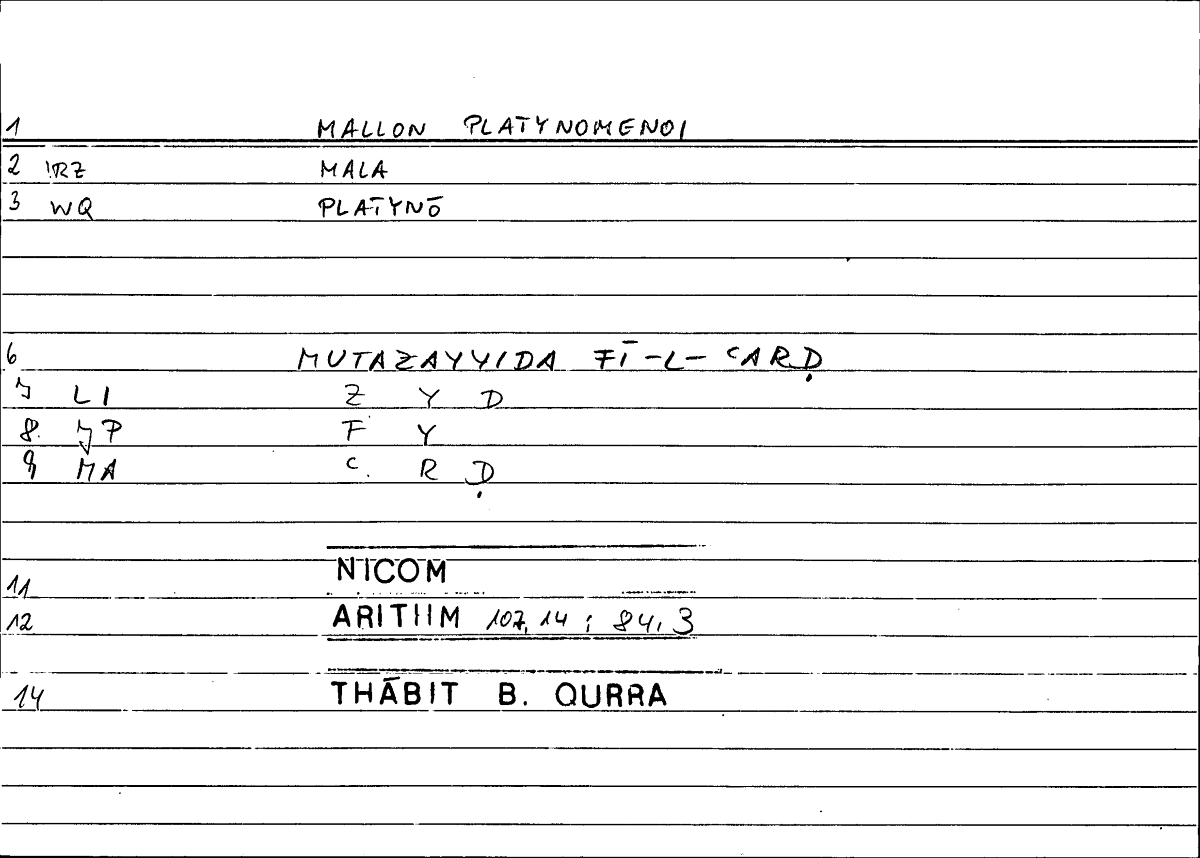 1 MALLON PLATYNOMENOI
2 !RZ MALA
3 WQ PLATYNŌ
6 MUTAZAYYIDA FĪ-L-CARḌ
7 LI Z Y D
8. 7P F Y
9 MA C. R Ḍ
11 NICOM
12 ARITHM 107,14 ; 84,3
14 THĀBIT B. QURRA